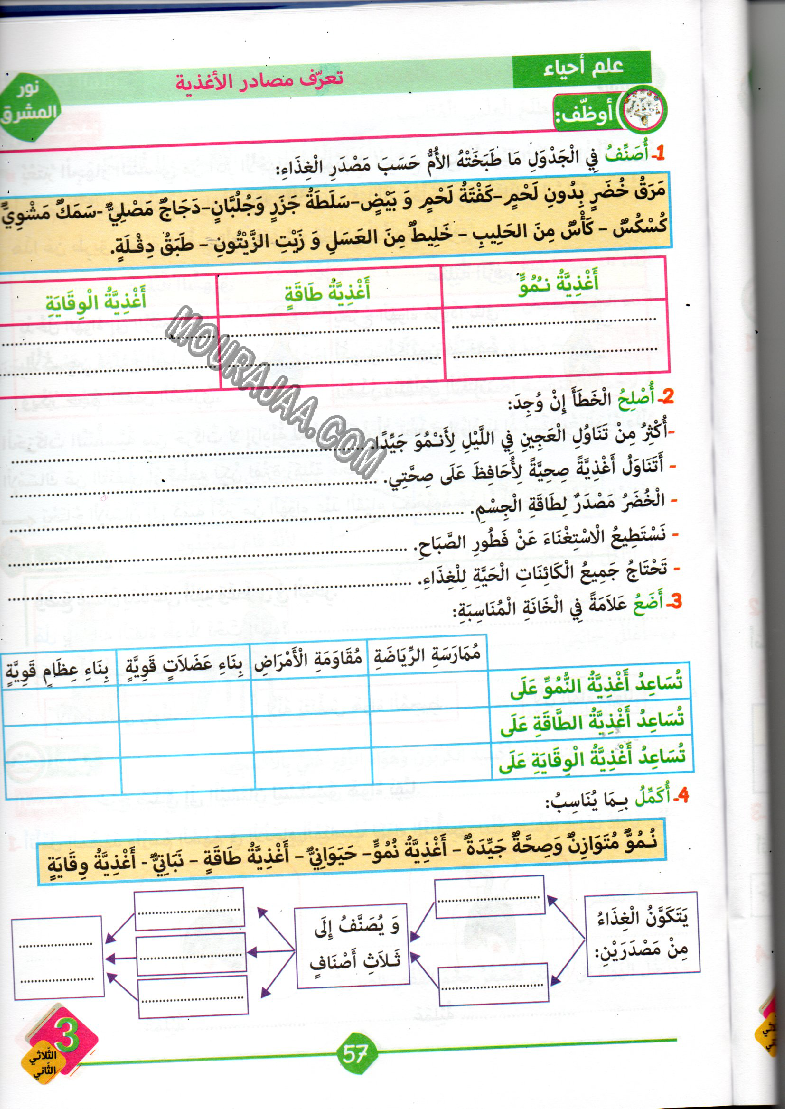 علم أحياء
تعرّف مصادر الأغذية
نور
المشرق
أوظّف:
1- أُصَنِّفُ فِي الْجَدْوَلِ مَا طَبَخَتْهُ الْأُمُّ حَسَبَ مَصْدَرِ الْغِذَاءِ:
مَرَقُ خُضَرٍ بِدُونِ لَحْمٍ – كَفْتَةُ لَحْمٍ وَ بَيْضٍ – سَلَطَةُ جَزَرٍ وَجُلْبَّانٍ – دَجَاجٌ مَصْلِيٌّ – سَمَكٌ مَشْوِيٌّ
كُسْكُسٌ – كَأْسٌ مِنَ الحَلِيبِ – خَلِيطٌ مِنَ العَسَلِ وَ زَيْتِ الزَّيْتُونِ – طَبَقُ دِقْلَةٍ.
أَغْذِيَّةُ نُمُوٍّ أَغْذِيَّةُ طَاقَةٍ أَغْذِيَّةُ الْوِقَايَةِ
MOURAJAA.COM
2- أُصْلِحُ الْخَطَأَ إِنْ وُجِدَ:
- أُكْثِرُ مِنْ تَنَاوُلِ العَجِينِ فِي اللَّيْلِ لِأَنْمُوَ جَيِّدًا. ..........
- أَتَنَاوَلُ أَغْذِيَّةً صِحِيَّةً لِأُحَافِظَ عَلَى صِحَّتِي. ..........
- الْخُضَرُ مَصْدَرٌ لِطَاقَةِ الْجِسْمِ. ..........
- نَسْتَطِيعُ الْاسْتِغْنَاءَ عَنْ فَطُورِ الصَّبَاحِ. ..........
- تَحْتَاجُ جَمِيعُ الْكَائِنَاتِ الْحَيَّةِ لِلْغِذَاءِ. ..........
3- أَضَعُ عَلَامَةً فِي الْخَانَةِ الْمُنَاسِبَةِ:
مُمَارَسَةِ الرِّيَاضَةِ مُقَاوَمَةِ الْأَمْرَاضِ بِنَاءِ عَضَلَاتٍ قَوِيَّةٍ بِنَاءِ عِظَامٍ قَوِيَّةٍ
تُسَاعِدُ أَغْذِيَّةُ النُّمُوِّ عَلَى
تُسَاعِدُ أَغْذِيَّةُ الطَّاقَةِ عَلَى
تُسَاعِدُ أَغْذِيَّةُ الْوِقَايَةِ عَلَى
4- أُكَمِّلُ بِمَا يُنَاسِبُ:
نُمُوٌّ مُتَوَازِنٌ وَصِحَّةٌ جَيِّدَةٌ – أَغْذِيَّةُ نُمُوٍّ – حَيَوَانِيٌّ – أَغْذِيَّةُ طَاقَةٍ – نَبَاتِيٌّ – أَغْذِيَّةُ وِقَايَةٍ
يَتَكَوَّنُ الْغِذَاءُ
مِنْ مَصْدَرَيْنِ:
وَ يُصَنَّفُ إِلَى
ثَلَاثِ أَصْنَافٍ
3
الثلاثي
الثاني
57